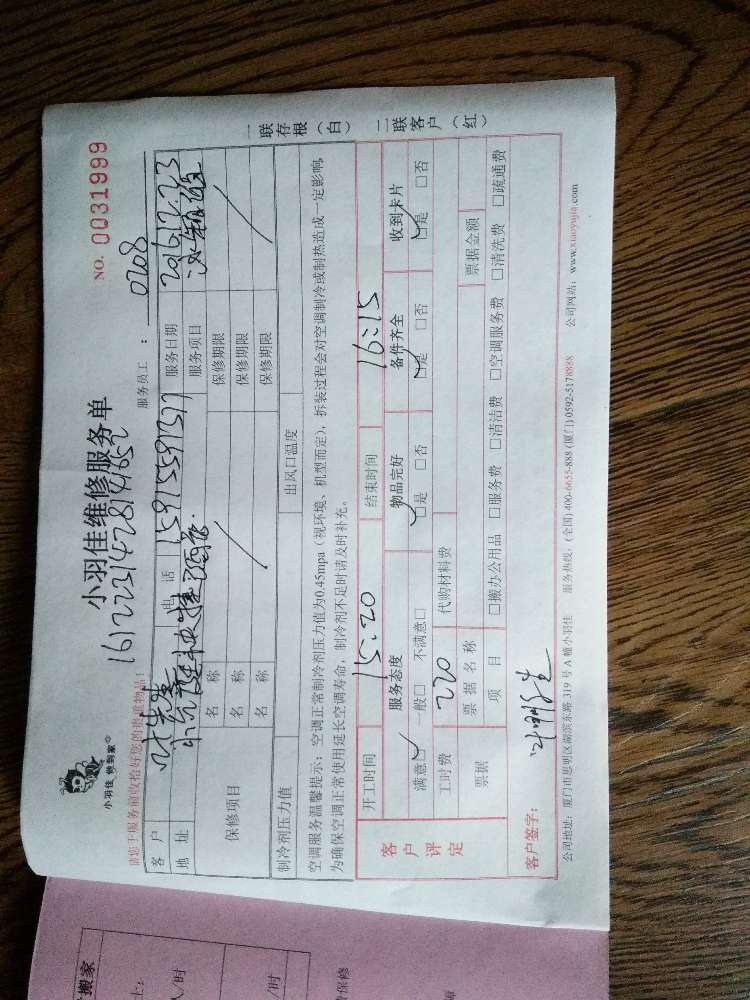 小羽佳 做到家
小羽佳维修服务单
NO. 0031999
161222147814652
请您于服务前收拾好您的贵重物品！
服务员工： 0208
客户 叶 电话 15915591377 服务日期 2016.12.23
地址 服务项目
保修项目 名称 保修期限
名称 保修期限
名称 保修期限
制冷剂压力值 出风口温度
空调服务温馨提示：空调正常制冷剂压力值为0.45mpa（视环境、机型而定），拆装过程会对空调制冷或制热造成一定影响，
为确保空调正常使用延长空调寿命，制冷剂不足时请及时补充。
客户评定
开工时间 15:20 结束时间 16:15
服务态度 物品完好 备件齐全 收到卡片
满意☑ 一般□ 不满意□ ☑是 □否 ☑是 □否 ☑是 □否
工时费 220 代购材料费
票据 票据名称 票据金额
项目 □搬办公用品 □服务费 □清洁费 □空调服务费 □清洗费 □疏通费
客户签字： 叶
公司地址：厦门市思明区湖滨东路 319 号 A 幢小羽佳 服务热线：(全国) 400-6655-888 (厦门) 0592-5178888 公司网站：www.xiaoyujia.com
一联存根（白） 二联客户（红）
搬家
/时
/时
保修